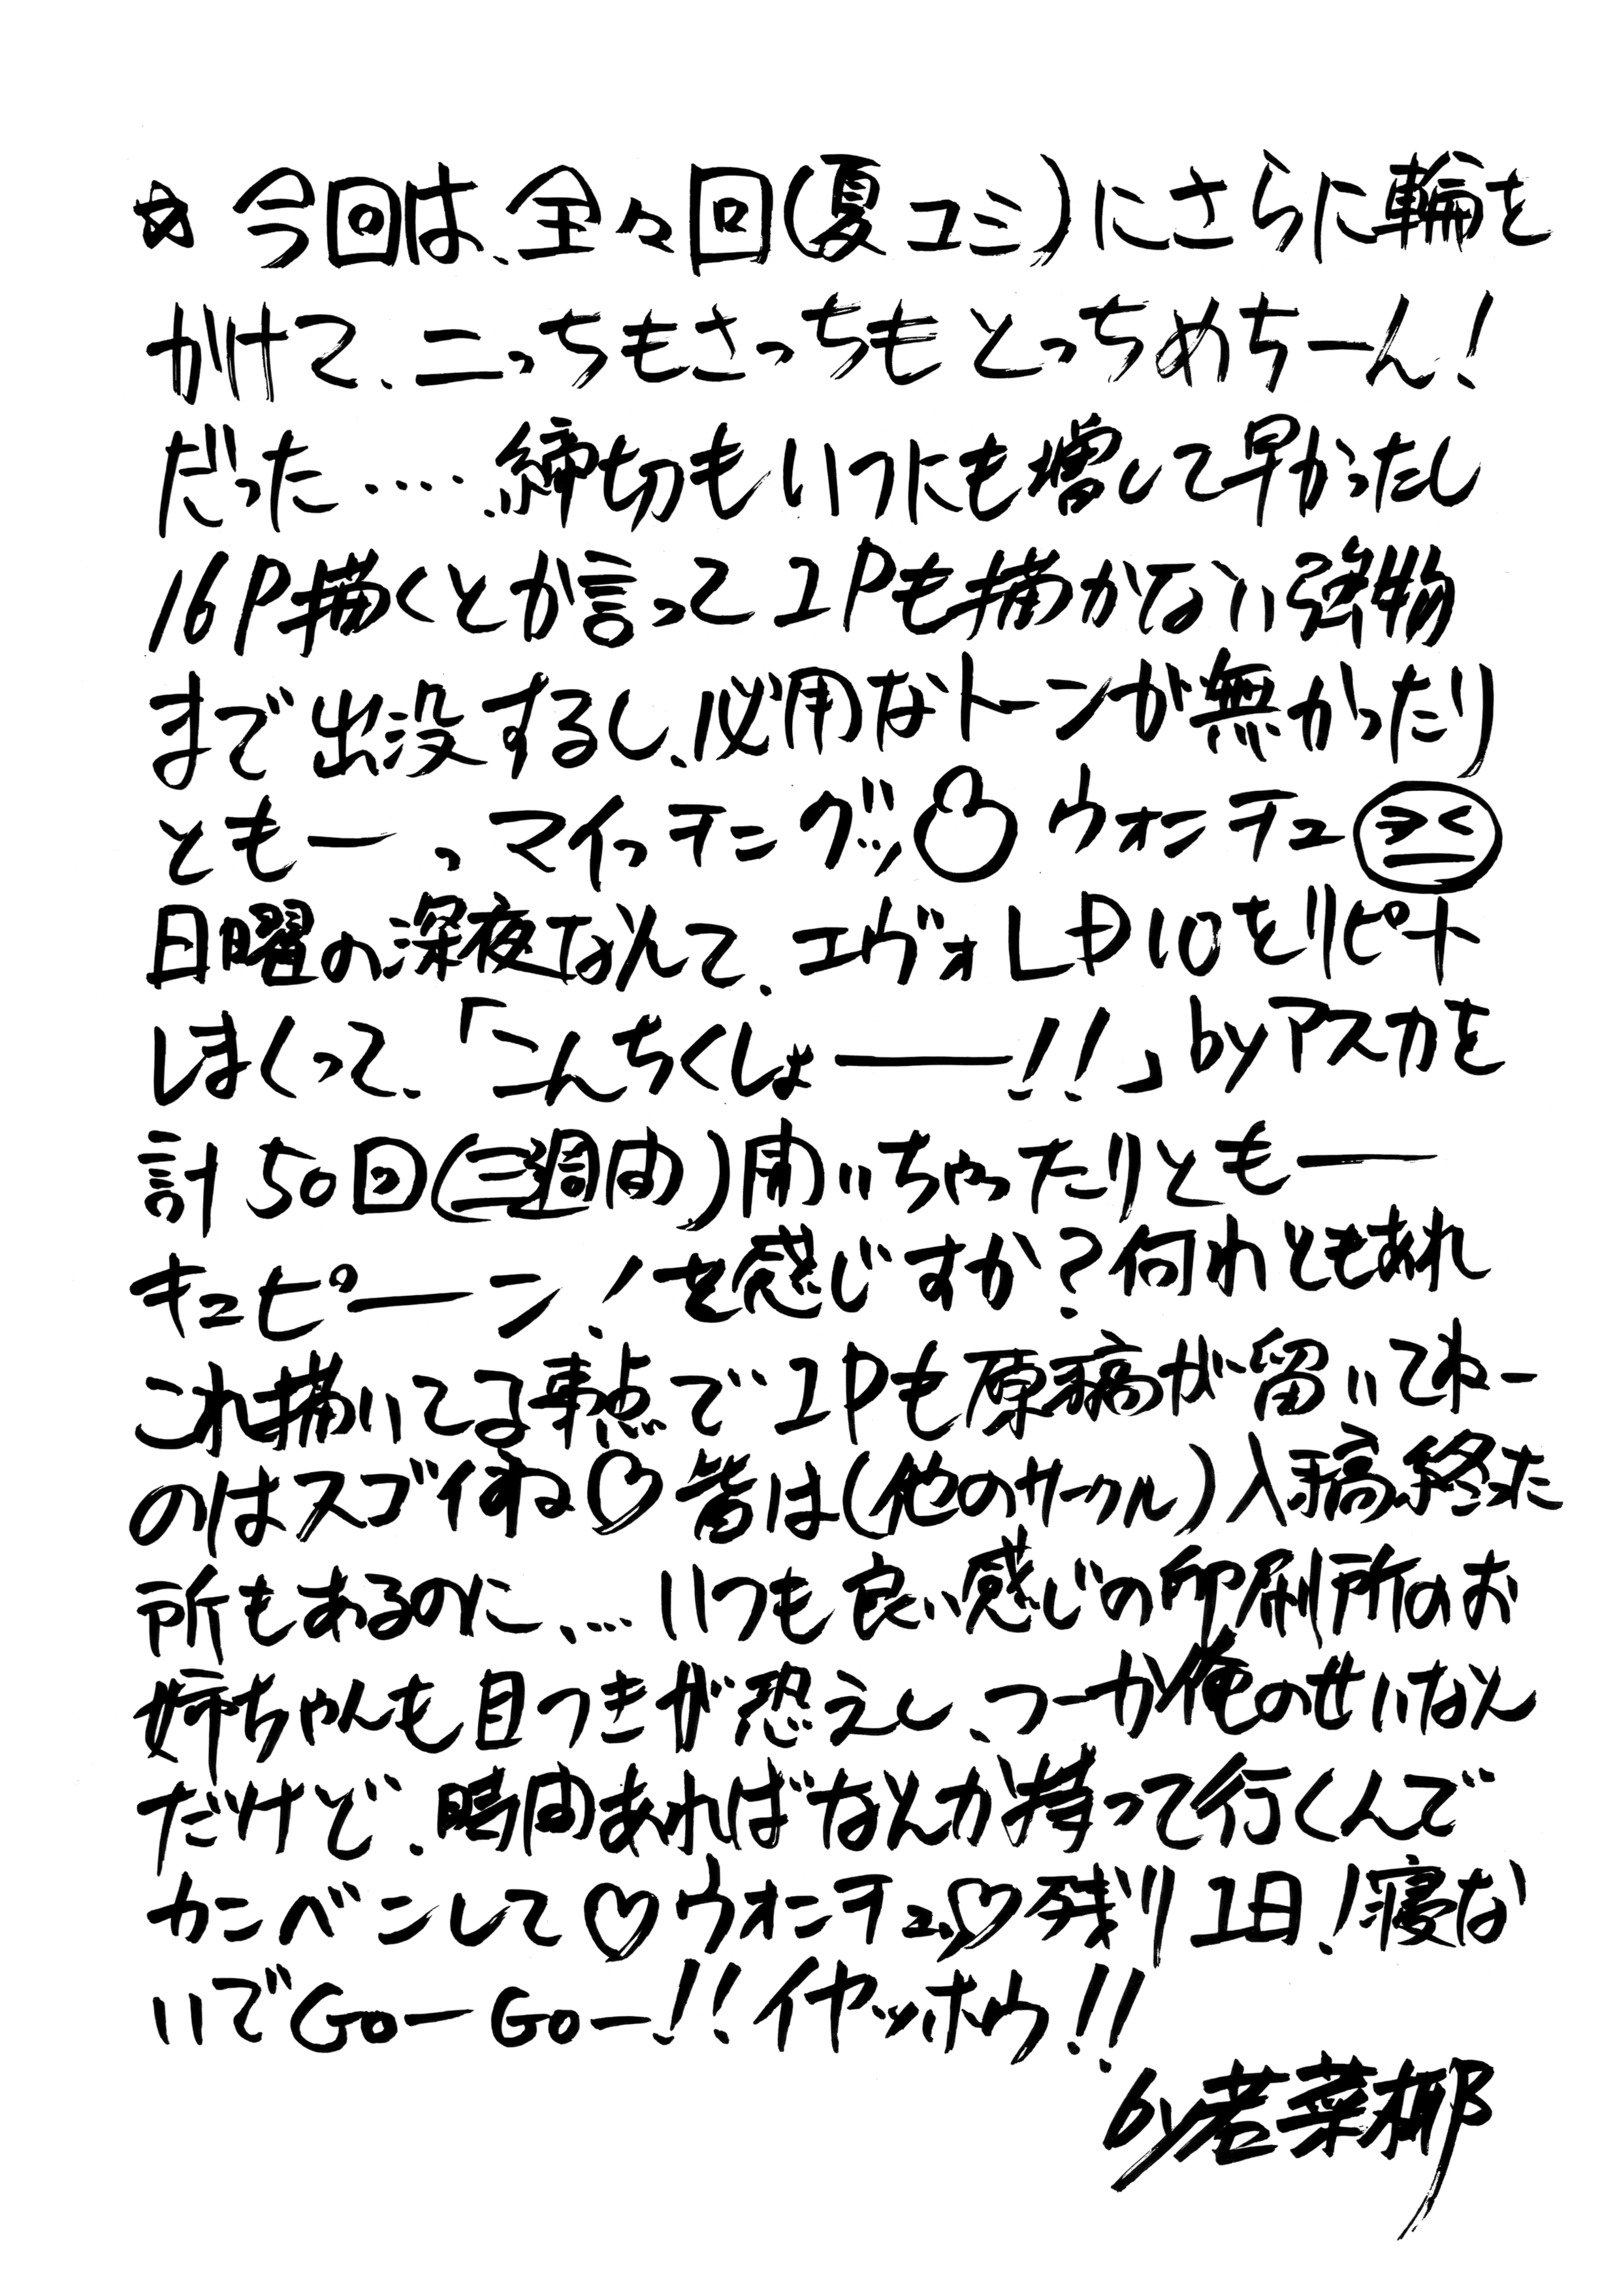 ☆今回は、全々回(夏コミ)にさらに輪を
かけて、ニっちもさっちもとっちめちーん!
だった‥‥締切もいつにも増して早かったし
16P描くとか言って1Pも描かない強物
まで出没するし、必用なトーンが無かったり
ともーっ マイっチングッ ウォンチュ
日曜の深夜なんて、エヴァLD10をリピート
しまくって、「こんちくしょ――!!」byアスカを
計50回(三週間)聞いちゃったりともー
キュピーン!を感じすか?何れともあれ
これ描いてる事点で1Pも原稿が留いてねー
のはスゴイすね♡皆は(他のサークル)入稿終た
所もあるのに、‥‥いつも良い感じの印刷所のお
姉ちゃんも目つきが恐えし、つーか俺のせいなん
だけど、時間あればなんか持って行くんで
カンベンして♡ウォンチュ♡残り1日!寝な
いでGoーGoー!!イヤッホゥ!!
by若菜椰